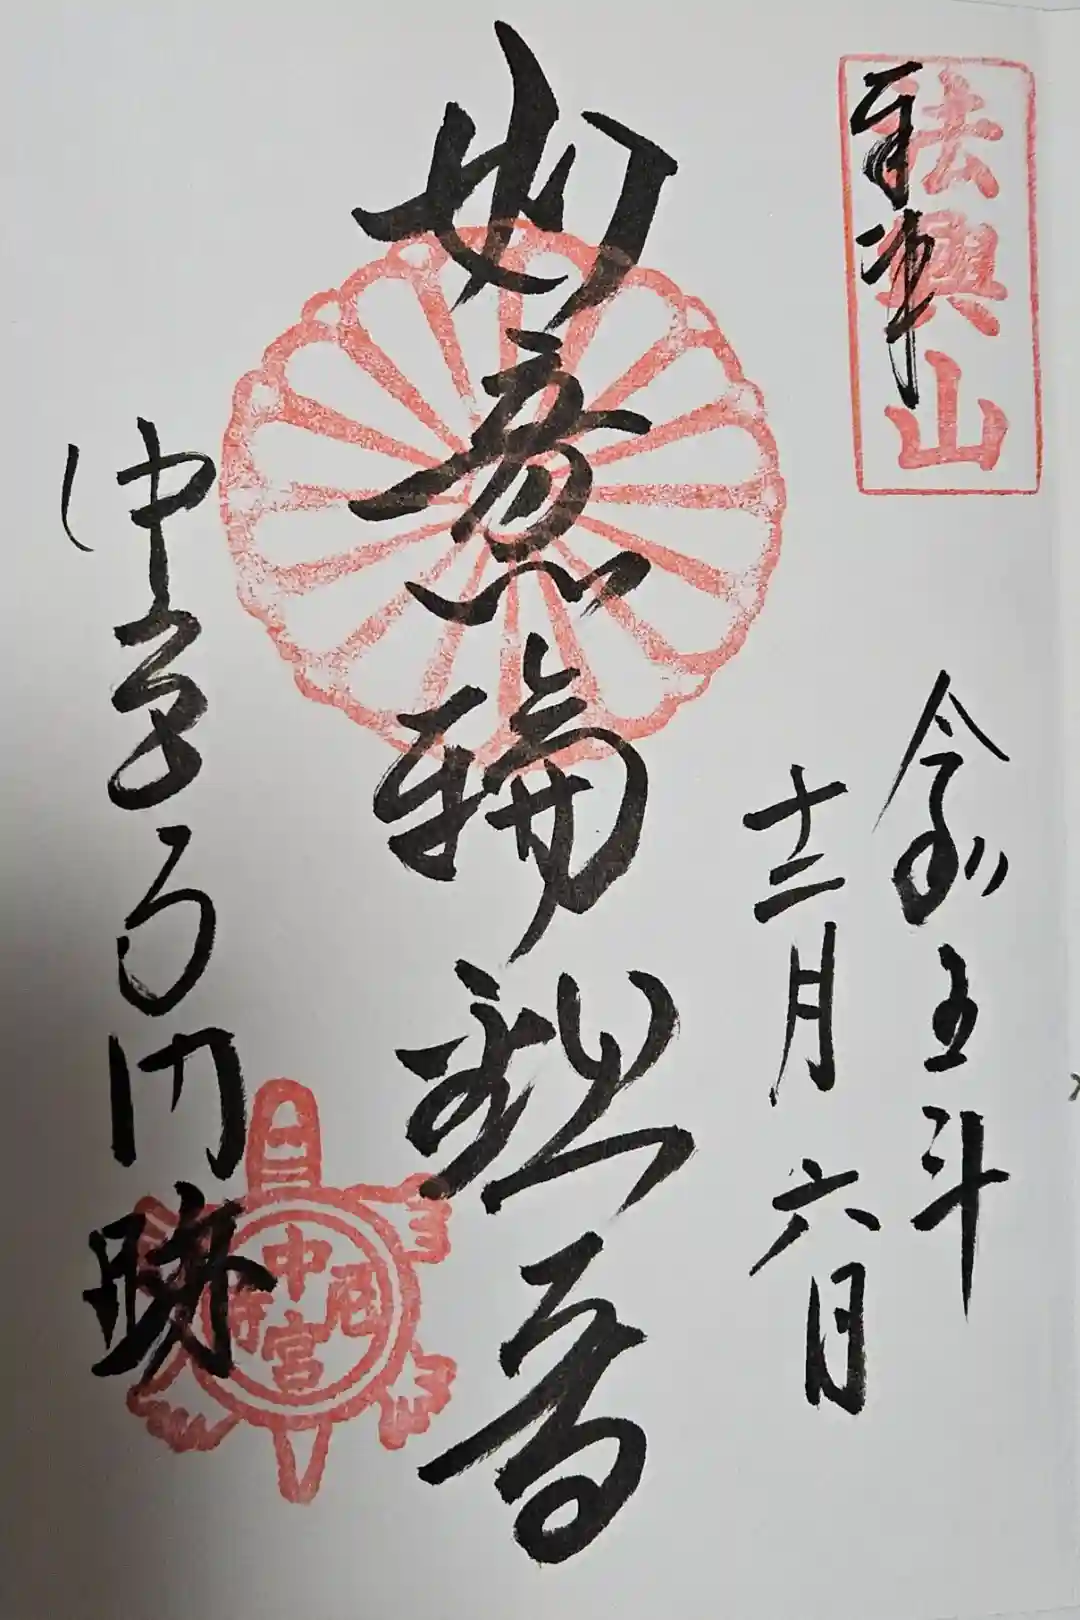 奉拝
法興山
令和五年
十二月六日
如意輪観音
中宮寺門跡
中宮尼寺